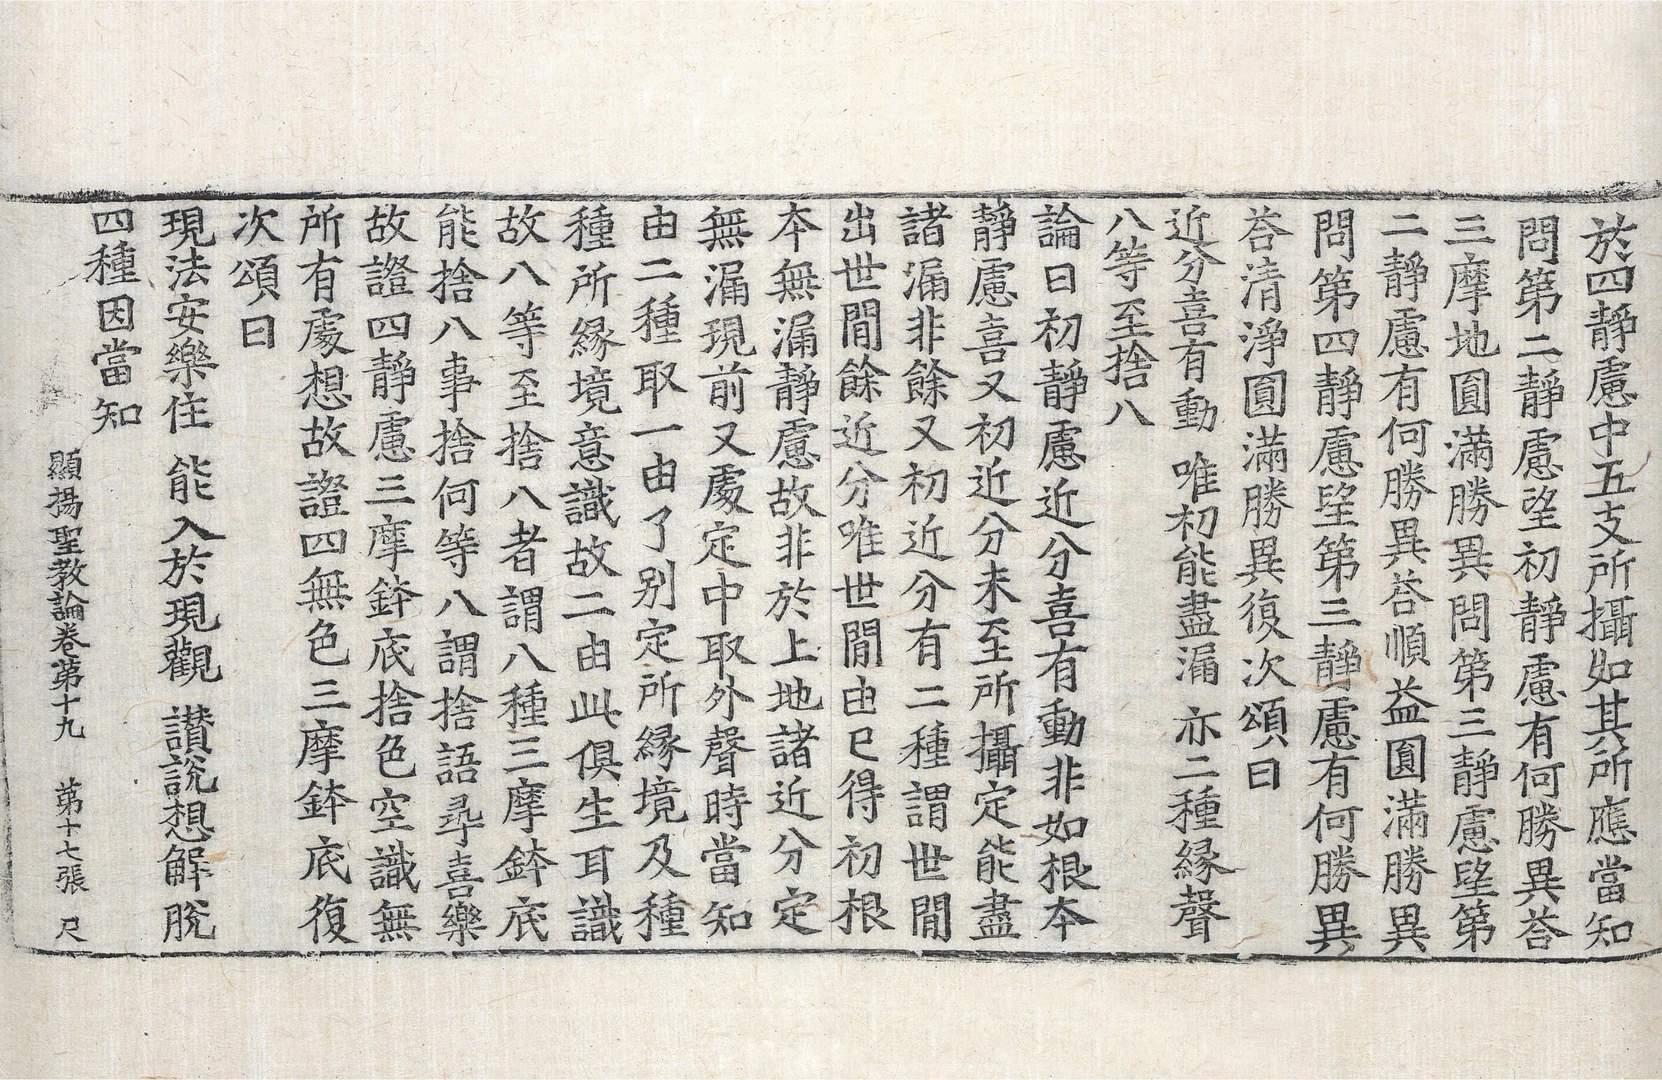 於四靜慮中五支所攝如其所應當知
問第二靜慮望初靜慮有何勝異荅
三摩地圓滿勝異問第三靜慮望第
二靜慮有何勝異荅順益圓滿勝異
問第四靜慮望第三靜慮有何勝異
荅清淨圓滿勝異復次頌曰
近分喜有動 唯初能盡漏 亦二種緣聲
八等至捨八
論曰初靜慮近分喜有動非如根本
靜慮喜又初近分未至所攝定能盡
諸漏非餘又初近分有二種謂世間
出世間餘近分唯世間由已得初根
本無漏靜慮故非於上地諸近分定
無漏現前又處定中取外聲時當知
由二種取一由了別定所緣境及種
種所緣境意識故二由此俱生耳識
故八等至捨八者謂八種三摩鉢底
能捨八事捨何等八謂捨語尋喜樂
故證四靜慮三摩鉢底捨色空識無
所有處想故證四無色三摩鉢底復
次頌曰
現法安樂住 能入於現觀 讚說想解脫
四種因當知
顯揚聖教論卷第十九 第十七張 尺